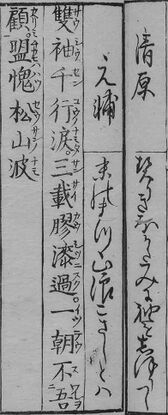 清原 契りきなかたみに袖をしほりつゝ
元輔 末のまつ山浪こさしとハ
雙袖千行涙。三載膠漆過。一朝不吾
顧。盟愧松山波